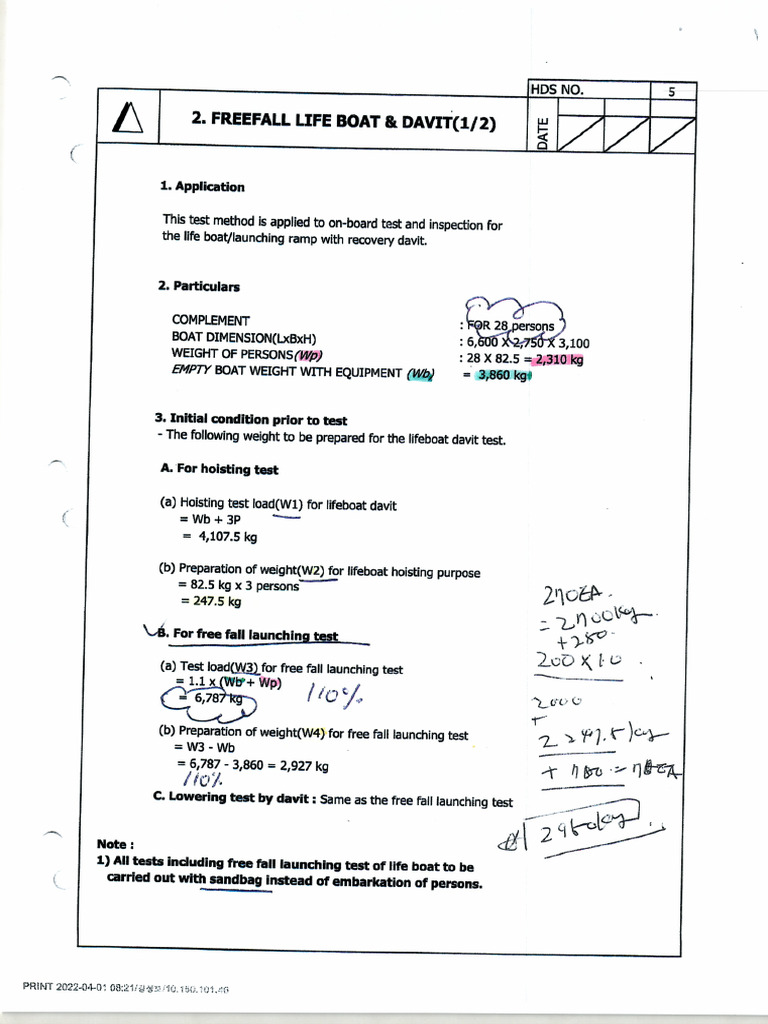 HDS NO. 5
2. FREEFALL LIFE BOAT & DAVIT(1/2)
DATE
1. Application
This test method is applied to on-board test and inspection for
the life boat/launching ramp with recovery davit.
2. Particulars
COMPLEMENT : FOR 28 persons
BOAT DIMENSION(LxBxH) : 6,600 X 2,750 X 3,100
WEIGHT OF PERSONS(Wp) : 28 X 82.5 = 2,310 kg
EMPTY BOAT WEIGHT WITH EQUIPMENT (Wb) = 3,860 kg
3. Initial condition prior to test
- The following weight to be prepared for the lifeboat davit test.
A. For hoisting test
(a) Hoisting test load(W1) for lifeboat davit
= Wb + 3P
= 4,107.5 kg
(b) Preparation of weight(W2) for lifeboat hoisting purpose
= 82.5 kg x 3 persons
= 247.5 kg
270EA.
= 2700kg
+280
200 X 10
B. For free fall launching test
(a) Test load(W3) for free fall launching test
= 1.1 x (Wb + Wp)
= 6,787 kg
110%
2000
+
2247.5 kg
(b) Preparation of weight(W4) for free fall launching test
= W3 - Wb
= 6,787 - 3,860 = 2,927 kg
110%
2950kg
C. Lowering test by davit : Same as the free fall launching test
Note :
1) All tests including free fall launching test of life boat to be
carried out with sandbag instead of embarkation of persons.
PRINT 2022-04-01 08:21/
/10.150.101.46